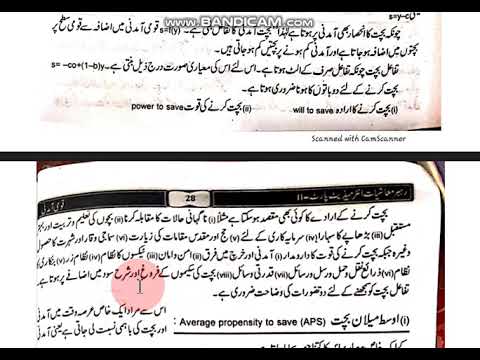 www.BANDICAM.com
s=y-c یعنی
چونکہ بچت کا انحصار بھی آمدنی پر ہوتا ہے لہٰذا بچت آمدنی کا تفاعل بنتی ہے۔ s=f(y) قومی آمدنی میں اضافہ سے قومی سطح پر
بچتوں میں اضافہ ہو جاتا ہے اور آمدنی کم ہونے پر بچتیں کم ہو جاتی ہیں۔
تفاعل بچت تفاعل صرف کے الٹ ہوتا ہے۔ اس لئے اس کی معیاری صورت درج ذیل بنتی ہے۔ s= -co+(1-b)y
بچت کرنے کے لئے دو باتوں کا ہونا ضروری ہوتا ہے۔
(i) بچت کرنے کا ارادہ will to save (ii) بچت کرنے کی قوت power to save
Scanned with CamScanner
رہبر معاشیات انٹرمیڈیٹ پارٹ-II 28 قومی آمدنی
بچت کرنے کے ارادے کا کوئی بھی مقصد ہو سکتا ہے مثلاً (i) ناگہانی حالات کا مقابلہ کرنا (ii) بچوں کی تعلیم و تربیت اور
مستقبل (iii) بڑھاپے کا سہارا (iv) سرمایہ کاری کے لئے (v) حج اور مقدس مقامات کی زیارت (vi) سماجی وقار اور شہرت کا حصول
وغیرہ جبکہ بچت کرنے کی قوت کا دارومدار (i) آمدنی اور خرچ میں فرق (ii) امن و امان (iii) ٹیکسوں کا نظام (iv) نظام زر (v) بنکاری
نظام (vi) ذرائع نقل و حمل و رسل و رسائل (vii) قدرتی وسائل (viii) بچت کی سکیموں کے فروغ اور شرح سود میں اضافے پر ہوتا ہے۔
تفاعل بچت کو سمجھنے کے لئے دو تصورات کی وضاحت ضروری ہے۔
(i) اوسط میلان بچت Average propensity to save (APS) :
اس سے مراد ایک خاص عرصہ وقت میں آمدنی
اور بچت کی باہمی نسبت لی جاتی ہے یعنی آمدنی